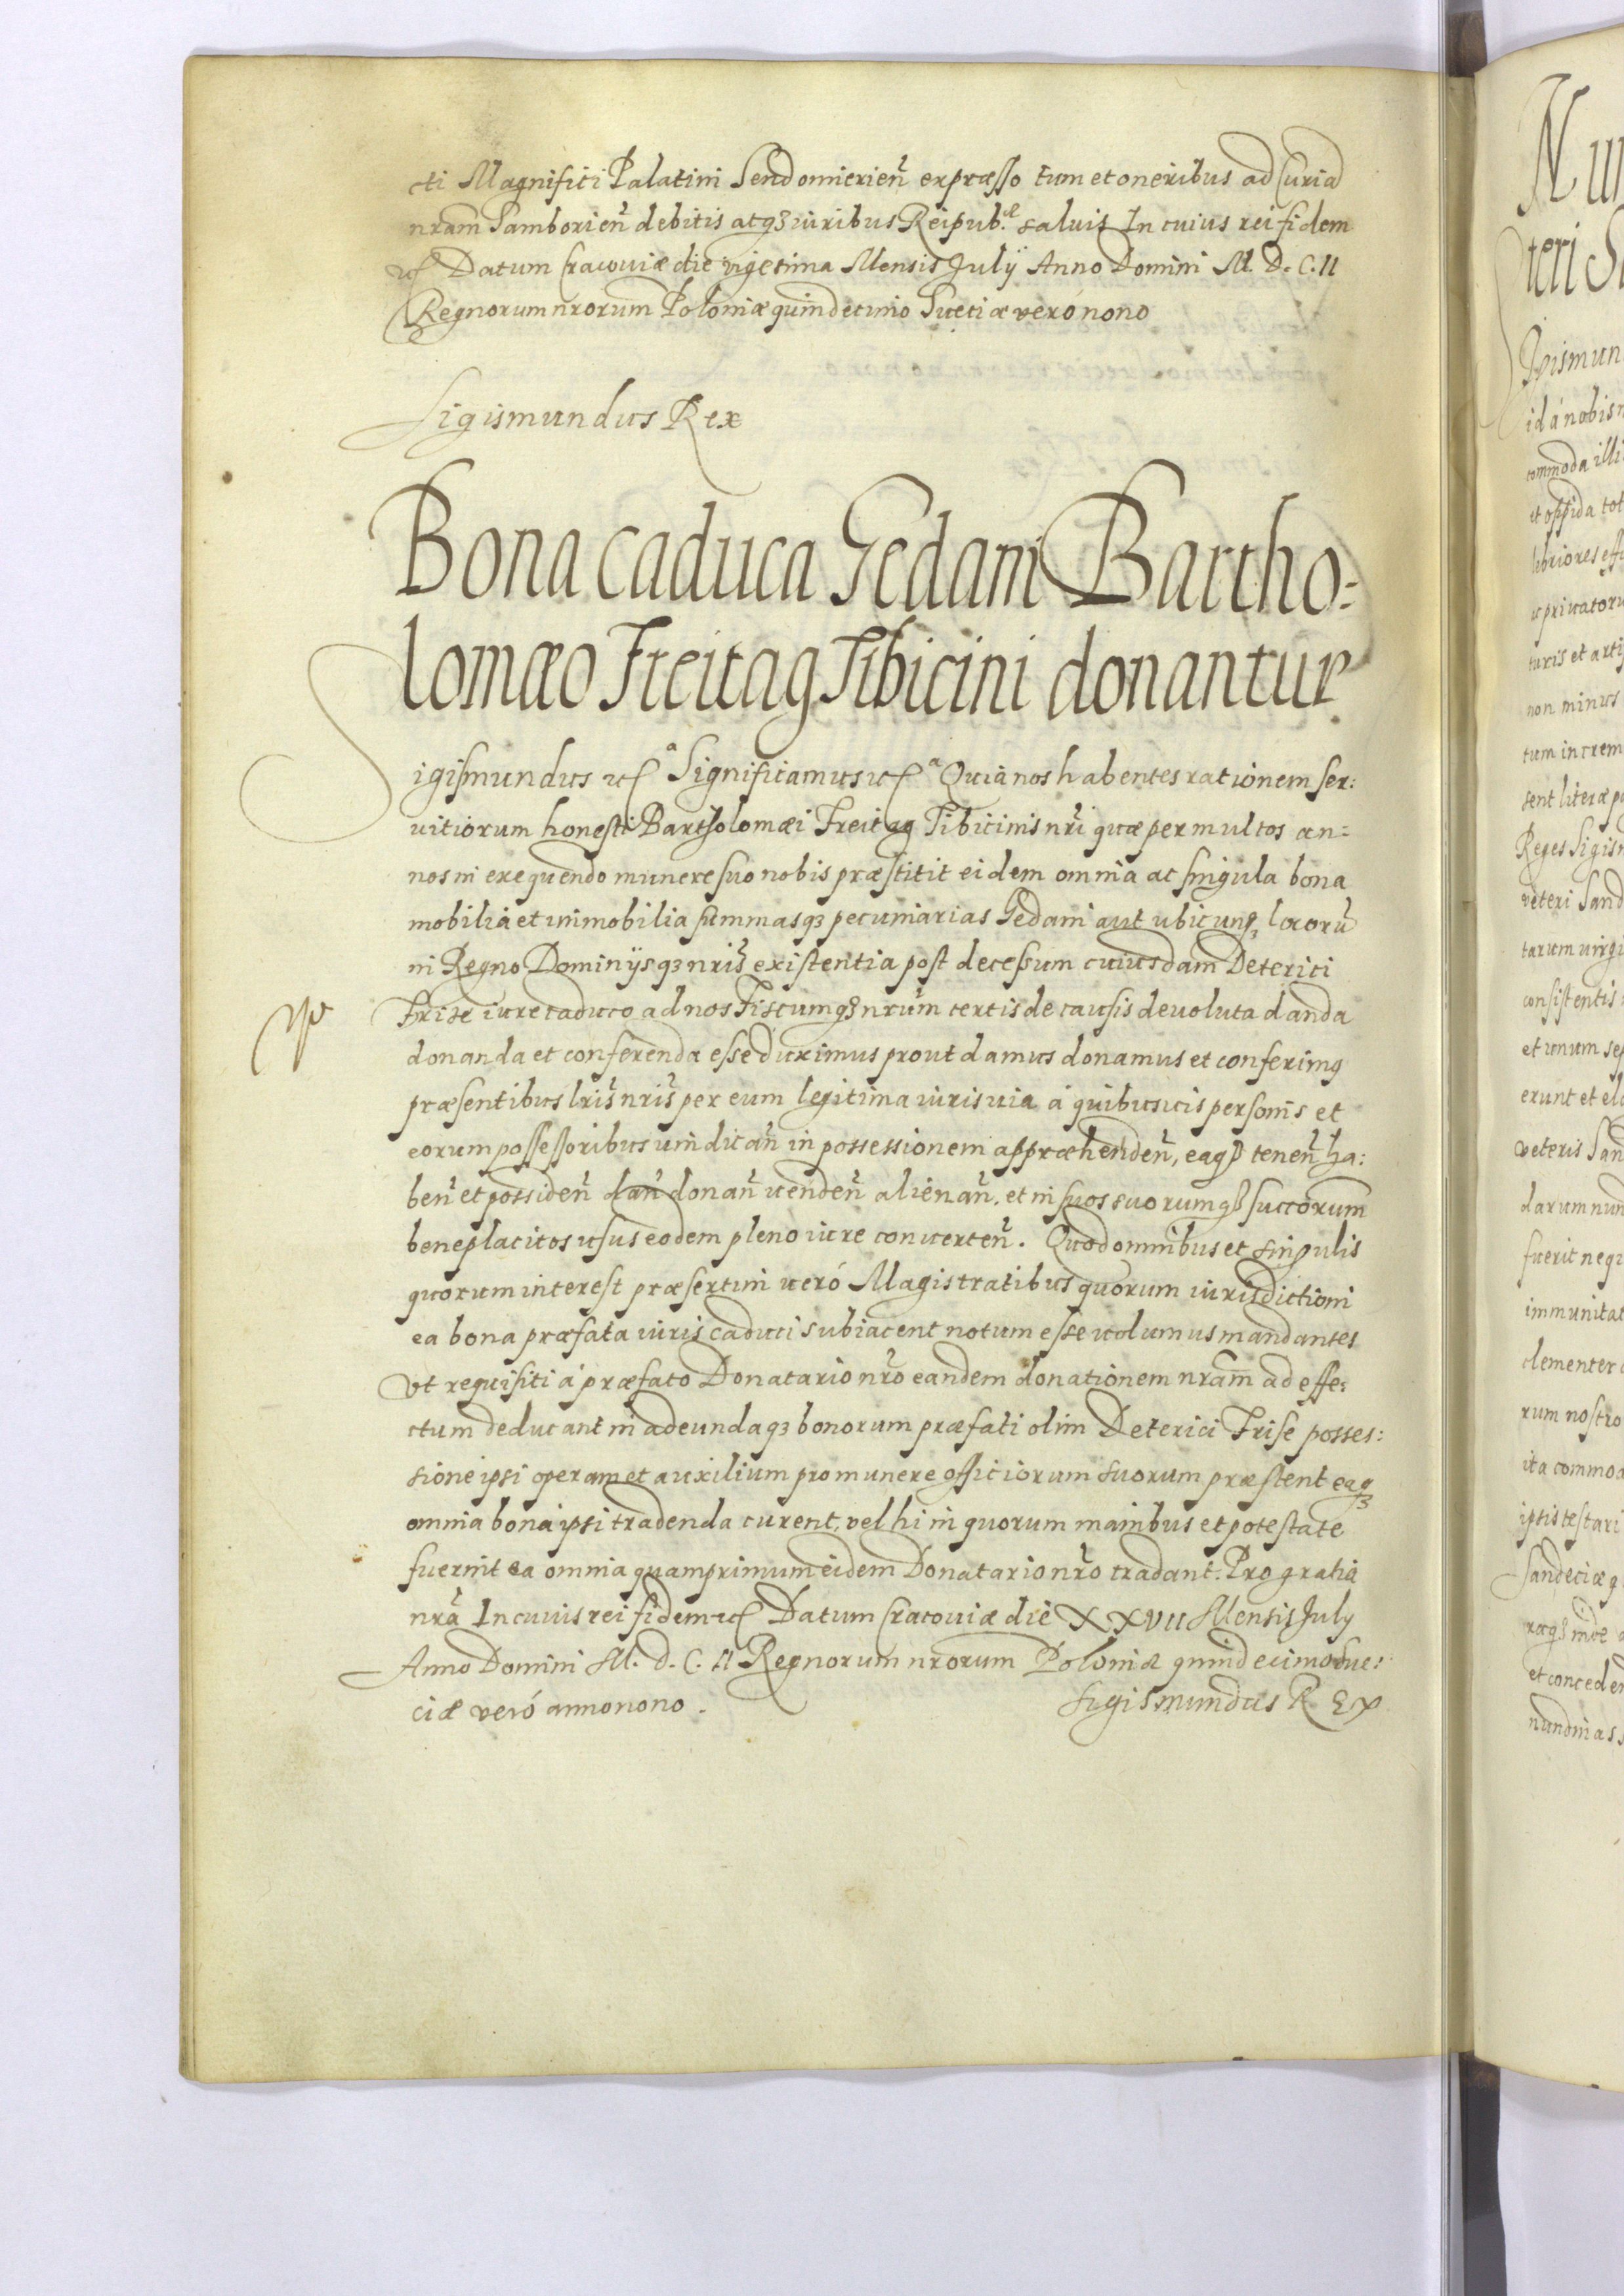 cti Magnifici Palatini Sendomirien̄ expræsso tum et oneribus ad Curiā
nram̄ Samborien̄ debitis atqꝫ iuribus Reipub.æ saluis In cuius rei fidem
ꝛc̄ Datum Cracouiæ die vigesima Mensis Julÿ Anno Domini M. D. C. II
Regnorum nrorum̄ Poloniæ quindecimo Sueciæ veró nono
Sigismundus Rex
Bona caduca Gedani Bartho:
lomæo Freitag Tibicini donantur
Sigismundus ꝛc̄ a Significamus ꝛc̄ a Quia nos habentes rationem ser:
uitiorum honesti Bartholomæi Freitag Tibicinis nr̄i quæ per multos an:
nos in exequendo munere suo nobis præstitit eidem omnia ac singula bona
mobilia et immobilia summasqꝫ pecuniarias Gedani aut ubicunqꝫ locorū
in Regno Dominÿsqꝫ nris̄ existentia post decessum cuiusdam Deterici
Frise iure caduco ad nos Fiscumqꝫ nrūm certis de causis deuoluta danda
donanda et conferenda esse duximus prout damus donamus et conferimꝰ
præsentibus lris̄ nris̄ per eum legitima iuris uia á quibusuis personis et
eorum possessoribus uindican̄ in possessionem appræhenden̄, eaqꝫ tenen̄ ha:
ben̄ et possiden̄ dan̄ donan̄ uenden̄ alienan̄. et in suos suorumqꝫ succorum̄
beneplacitos usus eodem pleno iure conuerten̄. Quod omnibus et singulis
quorum interest præsertim ueró Magistratibus quorum iurisdictioni
ea bona præfata iuris caduci subiacent notum esse uolumus mandantes
Vt requisiti á præfato Donatario nrō eandem donationem nram̄ ad effe:
ctum deducant in adeundaqꝫ bonorum præfati olim Deterici Frise posses:
sione ipsi operam et auxilium pro munere officiorum suorum præstent eaqꝫ
omnia bona ipsi tradenda curent, vel hi in quorum manibus et potestate
fuerint ea omnia quamprimum eidem Donatario nrō tradant. Pro gratia
nrā In cuius rei fidem ꝛc̄ Datum Cracouiæ die XXVII Mensis July
Anno Domini M. d. C. II Regnorum nrorum Poloniæ quindecimo Sue:
ciæ veró anno nono. Sigismundus R EX
Nun
teri S
igismun
id á nobis
commoda illi
et oppida tot
turis et arti
non minus
tum increm
sent literæ p
Reges Sigis
veteri Sand
tarum uirgi
consistentis
et unum se
erunt et ela
veteris San
darum nun
fuerit nequ
immunitat
clementer
rum nostro
ita commod
ipsis testari
Sandeciæ q
et conceden
nundinas